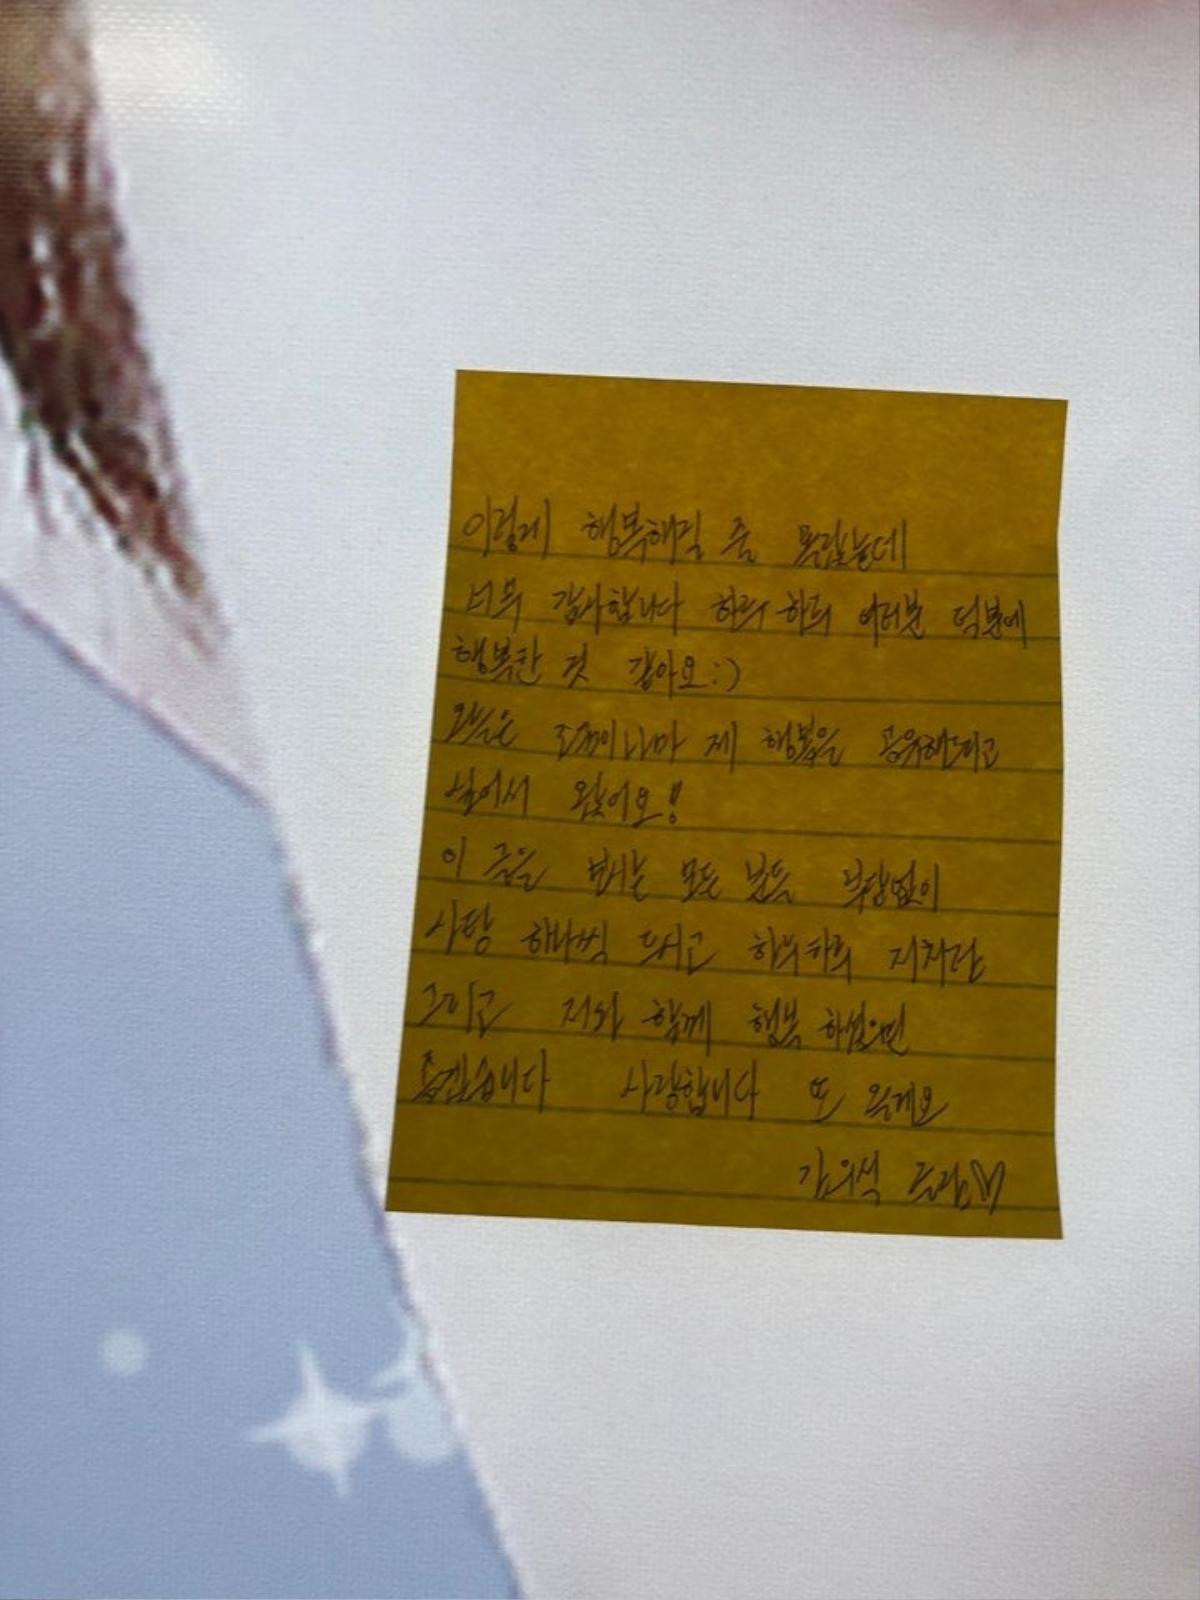 이렇게 행복해질 줄 몰랐는데
너무 감사합니다 하루하루 여러분 덕분에
행복한 것 같아요:)
오늘은 조금이나마 제 행복을 공유해드리고
싶어서 왔어요!
이 글을 보시는 모든 분들 부담없이
사탕 하나씩 드시고 하루하루 지치지말
그리고 저와 함께 행복 하셨으면
좋겠습니다 사랑합니다 또 올게요